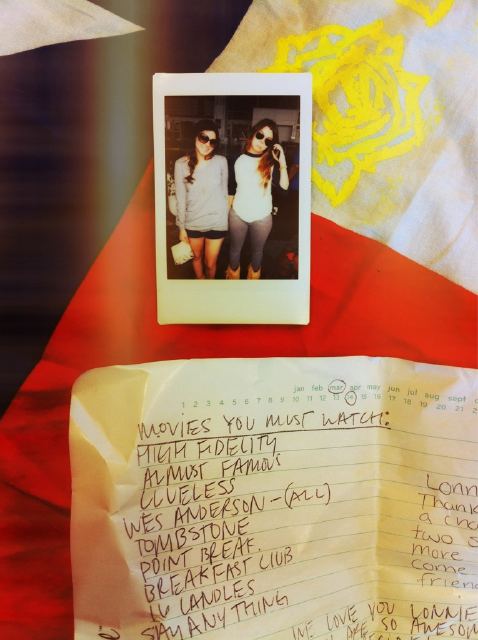 jan feb mar apr may jun jul aug sept
1 2 3 4 5 6 7 8 9 10 11 12 13 14 15 16 17 18 19 20 21
MOVIES YOU MUST WATCH:
HIGH FIDELITY
ALMOST FAMOUS
CLUELESS
WES ANDERSON - (ALL)
TOMBSTONE
POINT BREAK.
BREAKFAST CLUB
16 CANDLES
SAY ANYTHING
WE LOVE YOU LONNIE
SO AWESOM
Lonn
Thank
a cha
two s
more
come
frien